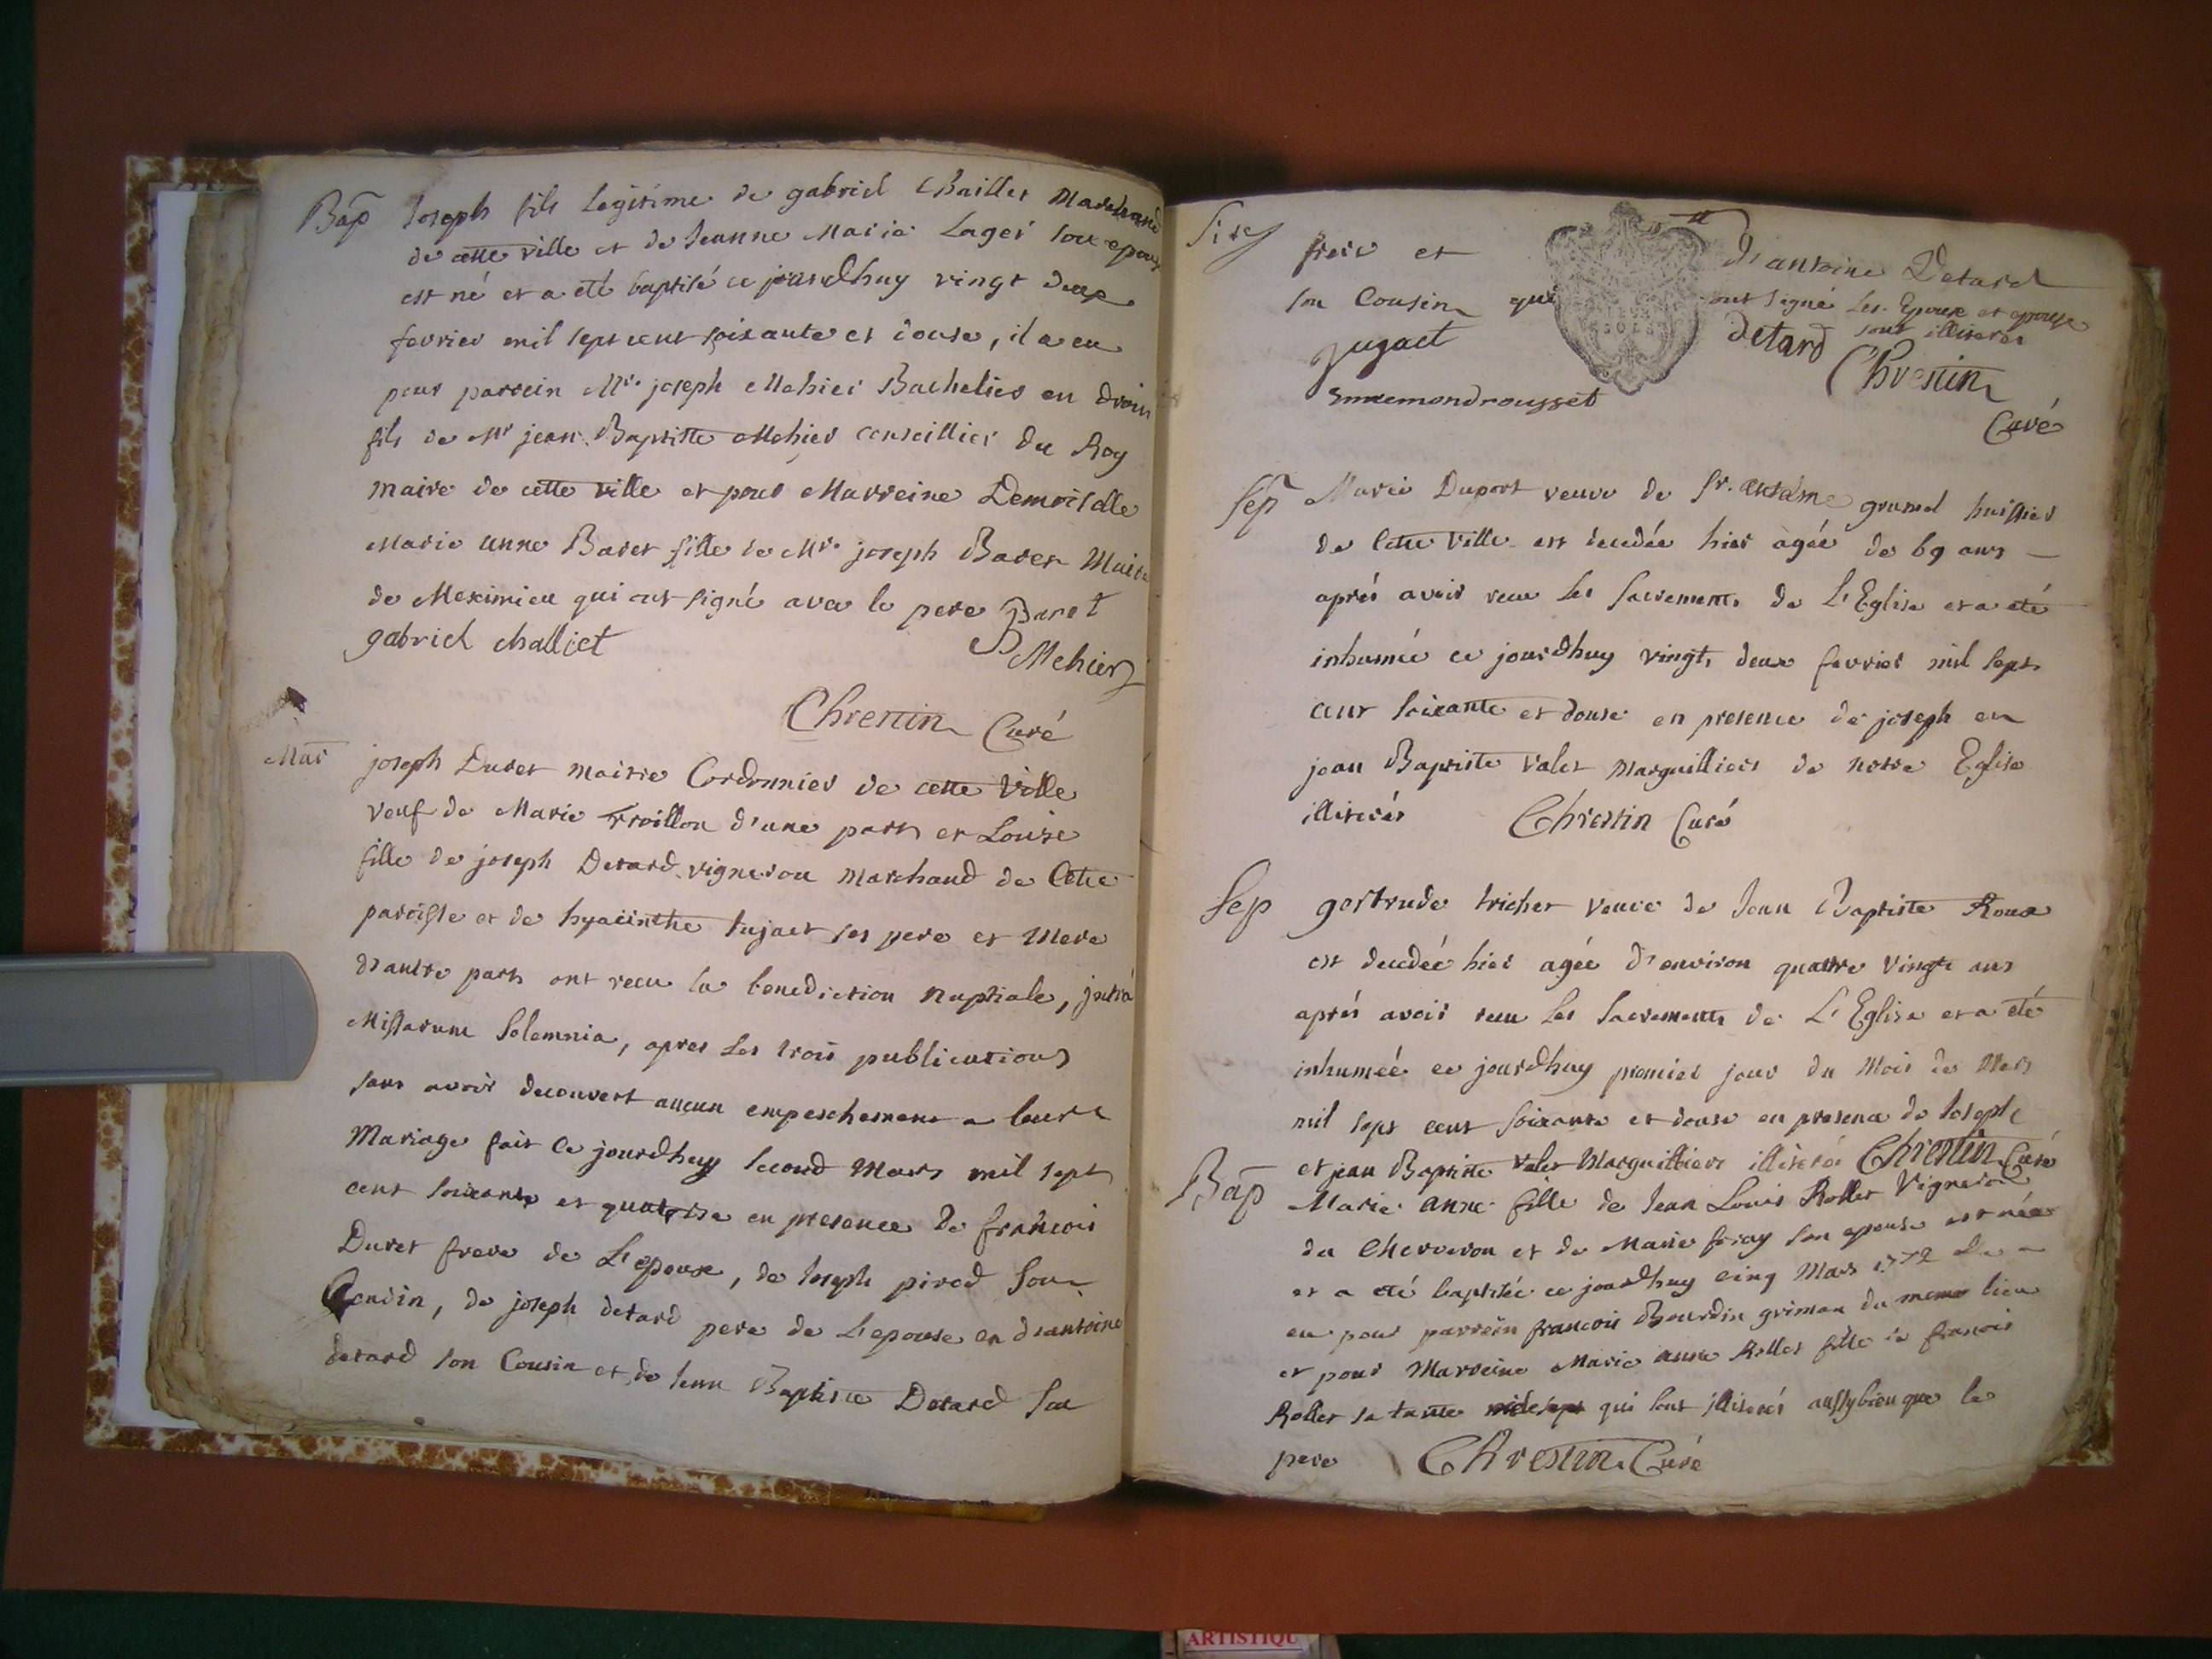 Bap Joseph fils legitime de gabriel Chaillet Marchand
de cette ville et de Jeanne Marie Lager son epouse
est né et a eté baptisé ce jourdhuy vingt deux
fevrier mil sept cent soixante et douse, il a eu
pour parrein Mr. joseph Mehier Bachelier en droit
fils de Mr jean Baptiste Mehier conseillier du Roy
maire de cette ville et pour Marreine Demoiselle
Marie anne Baret fille de Mr. joseph Baret Maire
de Meximieu qui ont signé avec le pere Baret
gabriel challiet
Mehier
Chrestin Curé
Mar joseph Duret maitre Cordonnier de cette Ville
veuf de Marie Troillon d'une part et Louise
fille de joseph Detard vigneron marchand de Cette
paroisse et de hyacinthe Jujact ses pere et Mere
d'autre part ont recu la benediction nuptiale, intra
Missarum Solemnia, apres les trois publications
sans avoir decouvert aucun empeschement a leur
Mariage fait ce jourdhuy second Mars mil sept
cent soixante et quatorse en presence de francois
Duret frere de L'epoux, de Joseph pirod son
Cousin, de joseph detard pere de L'epouse en d'antoine
detard son Cousin et de Jean Baptiste Detard son
frere et d'antoine Detard
son Cousin qui ont signé Les Epoux et epouse
sont illiterés
Jugact detard Chrestin
Curé
Sep Marie Duport veuve de Sr. antelme grumel huissier
de Cette Ville est decedée hier agée de 69 ans —
aprés avoir receu les sacrements de L'Eglise et a eté
inhumée ce jourdhuy vingt deux fevrier mil sept
cent soixante et douse en presence de joseph en
jean Baptiste Valet marguilliers de notre Eglise
illiterés Chrestin Curé
Sep gertrude tricher veuve de Jean Baptiste Roux
est decedée hier agée d'environ quattre vingt ans
aprés avoir receu les sacrements de L'Eglise et a eté
inhumée ce jourdhuy premier jour du Mois de Mars
mil sept cent soixante et douse en presence de Joseph
et jean Baptiste Valet Marguilliers illiterés Chrestin Curé
Bap Marie anne fille de Jean Louis Rollet Vigneron
du Cherveron et de Marie feray son epouse est née
et a eté baptisée ce jourdhuy cinq Mars 1772 Elle a
eu pour parrein francois Bourdin du meme lieu
et pour Marreine Marie anne Rollet fille de francois
Rollet sa tante qui sont illiterés aussybien que le
pere Chrestin Curé
ARTISTIQU